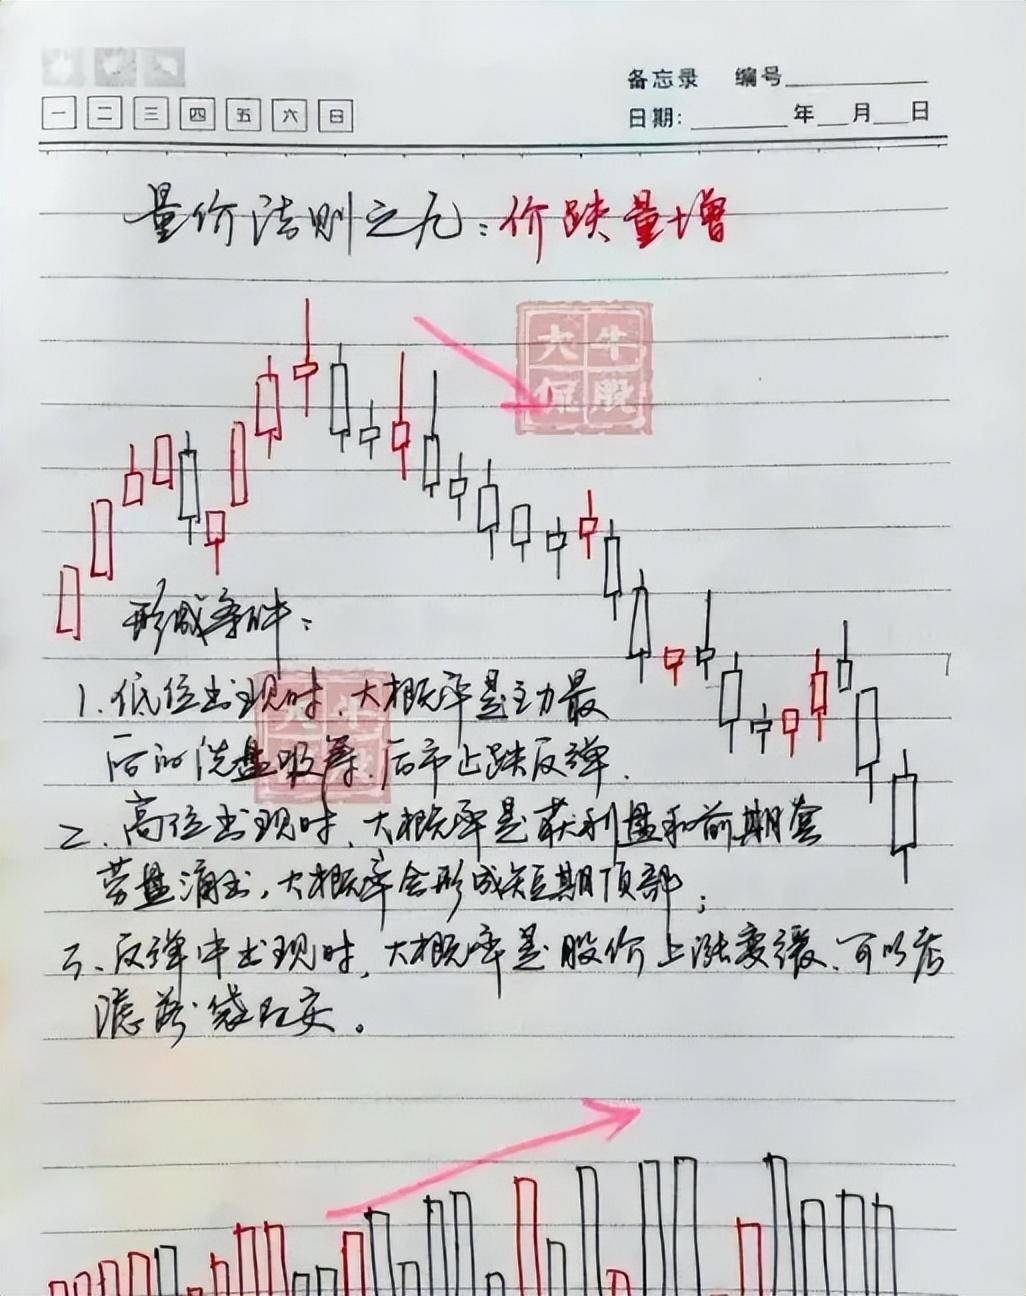 备忘录 编号
一 二 三 四 五 六 日
日期: 年 月 日
量价法则之九：价跌量增
大牛
侃股
形成条件：
1、低位出现时，大概率是主力最
后的洗盘吸筹，后市止跌反弹．
2、高位出现时，大概率是获利盘和前期套
劳盘涌出，大概率会形成短期顶部；
3、反弹中出现时，大概率是股价上涨变缓，可以考
虑落袋为安。